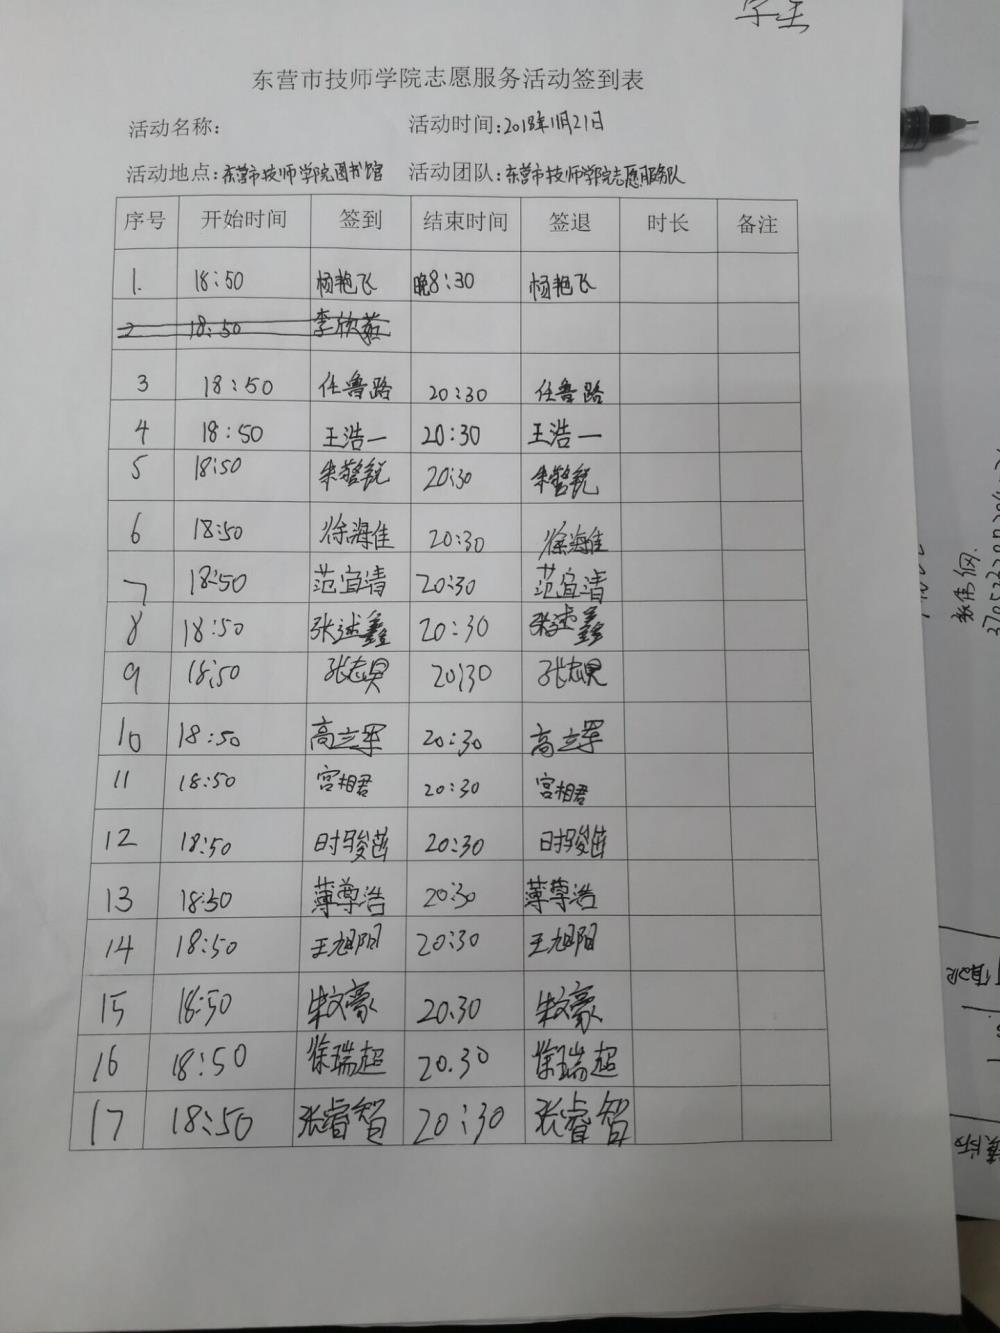 学生
东营市技师学院志愿服务活动签到表
活动名称： 活动时间：2018年11月21日
活动地点：东营市技师学院图书馆 活动团队：东营市技师学院志愿服务队
序号 开始时间 签到 结束时间 签退 时长 备注
1. 18:50 杨艳飞 晚8:30 杨艳飞
2 18:50 李欣茹
3 18:50 任鲁路 20:30 任鲁路
4 18:50 王浩一 20:30 王浩一
5 18:50 朱警锐 20:30 朱警锐
6 18:50 徐海佳 20:30 徐海佳
7 18:50 范宜清 20:30 范宜清
8 18:50 张述鑫 20:30 张述鑫
9 18:50 张志昊 20:30 张志昊
10 18:50 高立军 20:30 高立军
11 18:50 宫相君 20:30 宫相君
12 18:50 时骏 20:30 时骏
13 18:50 薄尊浩 20:30 薄尊浩
14 18:50 王旭阳 20:30 王旭阳
15 18:50 朱文豪 20.30 朱文豪
16 18:50 徐瑞超 20.30 徐瑞超
17 18:50 张睿智 20:30 张睿智